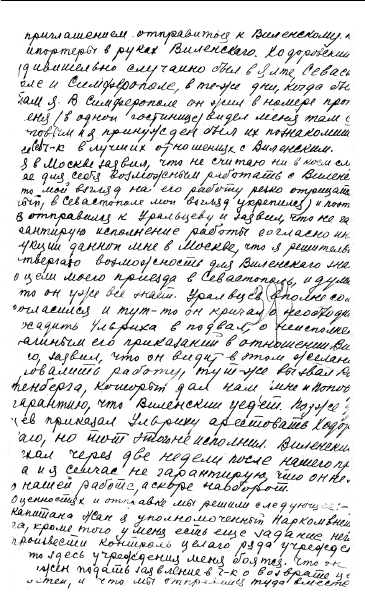 приглашением отправиться к Виленскому.
и портеры в руках Виленскаго. Ходоровский
дивительно случайно был в Ялте Севас
оле и Симферополе, в те-же дни, когда бы
там я. В Симферополе он жил в номере про
еня /в одной гостинице/ видел меня там с
и я принужден был их познакоми
в лучших отношениях с Виленским.
я в Москве заявил, что не считаю ни в коем сл
ае для себя возможным работать с Вилен
то мой взгляд на его работу резко отрицат
в Севастополе мой взгляд укрепился/ и пот
отправился к Уральцеву и заявил, что не га
антирую исполнение работы согласно ин
укции данной мне в Москве, что я решитель
твергаю возможность для Виленского зна
о цели моего приезда в Севастополь, и дум
то он уже все знает. Уральцев вполне со
огласился и тут-то он кричал о необходи
жадить Ульриха в подвал, о неисполне
его приказаний в отношении Ви
го, заявил, что он видит в этом желан
работу, тут-же вызвал
тенберга, который дал нам /мне и
гарантию, что Виленский уедет. Позже
ев приказал Ульриху арестовать Ходор
но тот этого не исполнил. Виленски
хал через две недели после нашего пр
а и я сейчас не гарантирую, что он не
о нашей работе, а скорее наоборот.
оценностях и отправке мы решили следующее:-
капитана Жан я уполномоченный Наркомвне
га, кроме того у меня есть еще задание не
произвести контроль целого ряда учрежде
то здесь учреждения меня боятся. Что он
жен подать заявление в ч-ко о возврате це
и что мы отправимся туда вместе